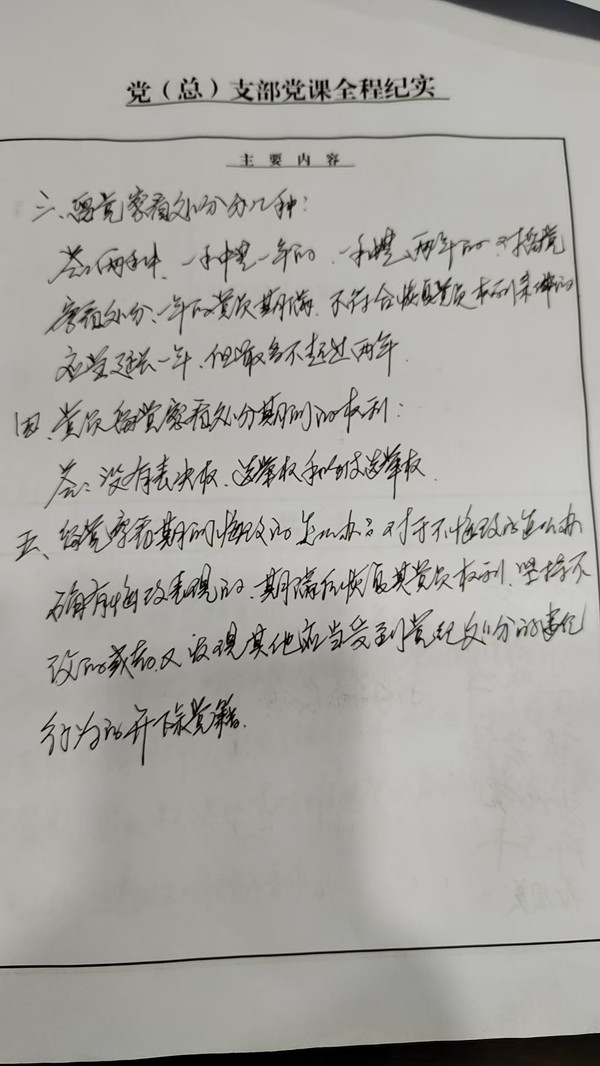 党（总）支部党课全程纪实
主要内容
三、留党察看处分分几种：
答：两种，一种是一年的，一种是两年的。对留党
察看处分、一年的党员期满，不符合恢复党员权利条件的
应当延长一年，但最多不超过两年。
四、党员留党察看处分期间的权利：
答：没有表决权、选举权和被选举权。
五、留党察看期间悔改的怎么办？对于不悔改的怎么办
确有悔改表现的，期满后恢复其党员权利、坚持不
改的或者又发现其他应当受到党纪处分的违纪
行为的开除党籍。